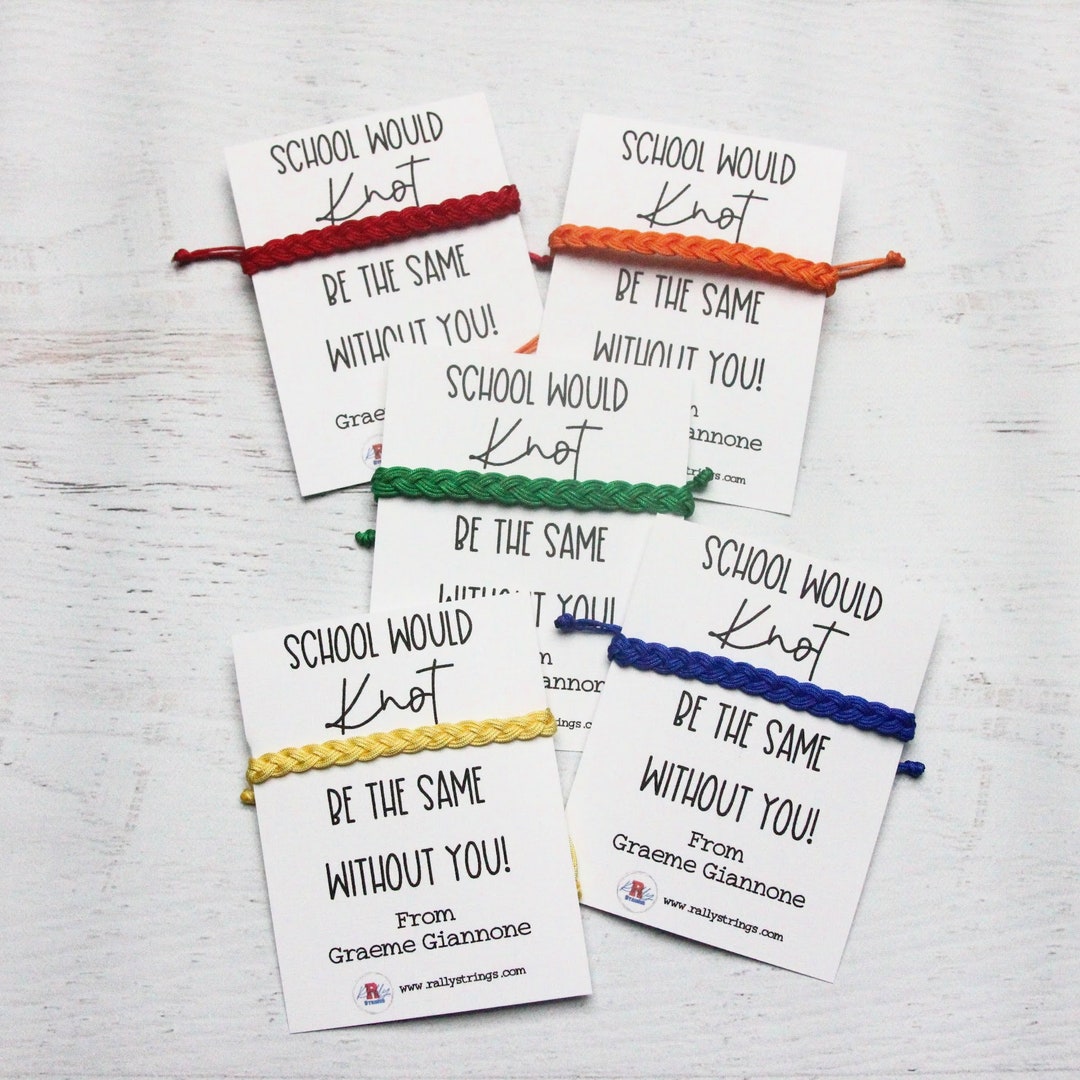 SCHOOL WOULD
Knot
BE THE SAME
WITHOUT YOU!
Grae
SCHOOL WOULD
Knot
BE THE SAME
WITHOUT YOU!
Giannone
SCHOOL WOULD
Knot
BE THE SAME
WITHOUT YOU!
SCHOOL WOULD
Knot
BE THE SAME
WITHOUT YOU!
From
Graeme Giannone
Rally
STRINGS
www.rallystrings.com
SCHOOL WOULD
Knot
BE THE SAME
WITHOUT YOU!
From
Graeme Giannone
Rally
STRINGS
www.rallystrings.com